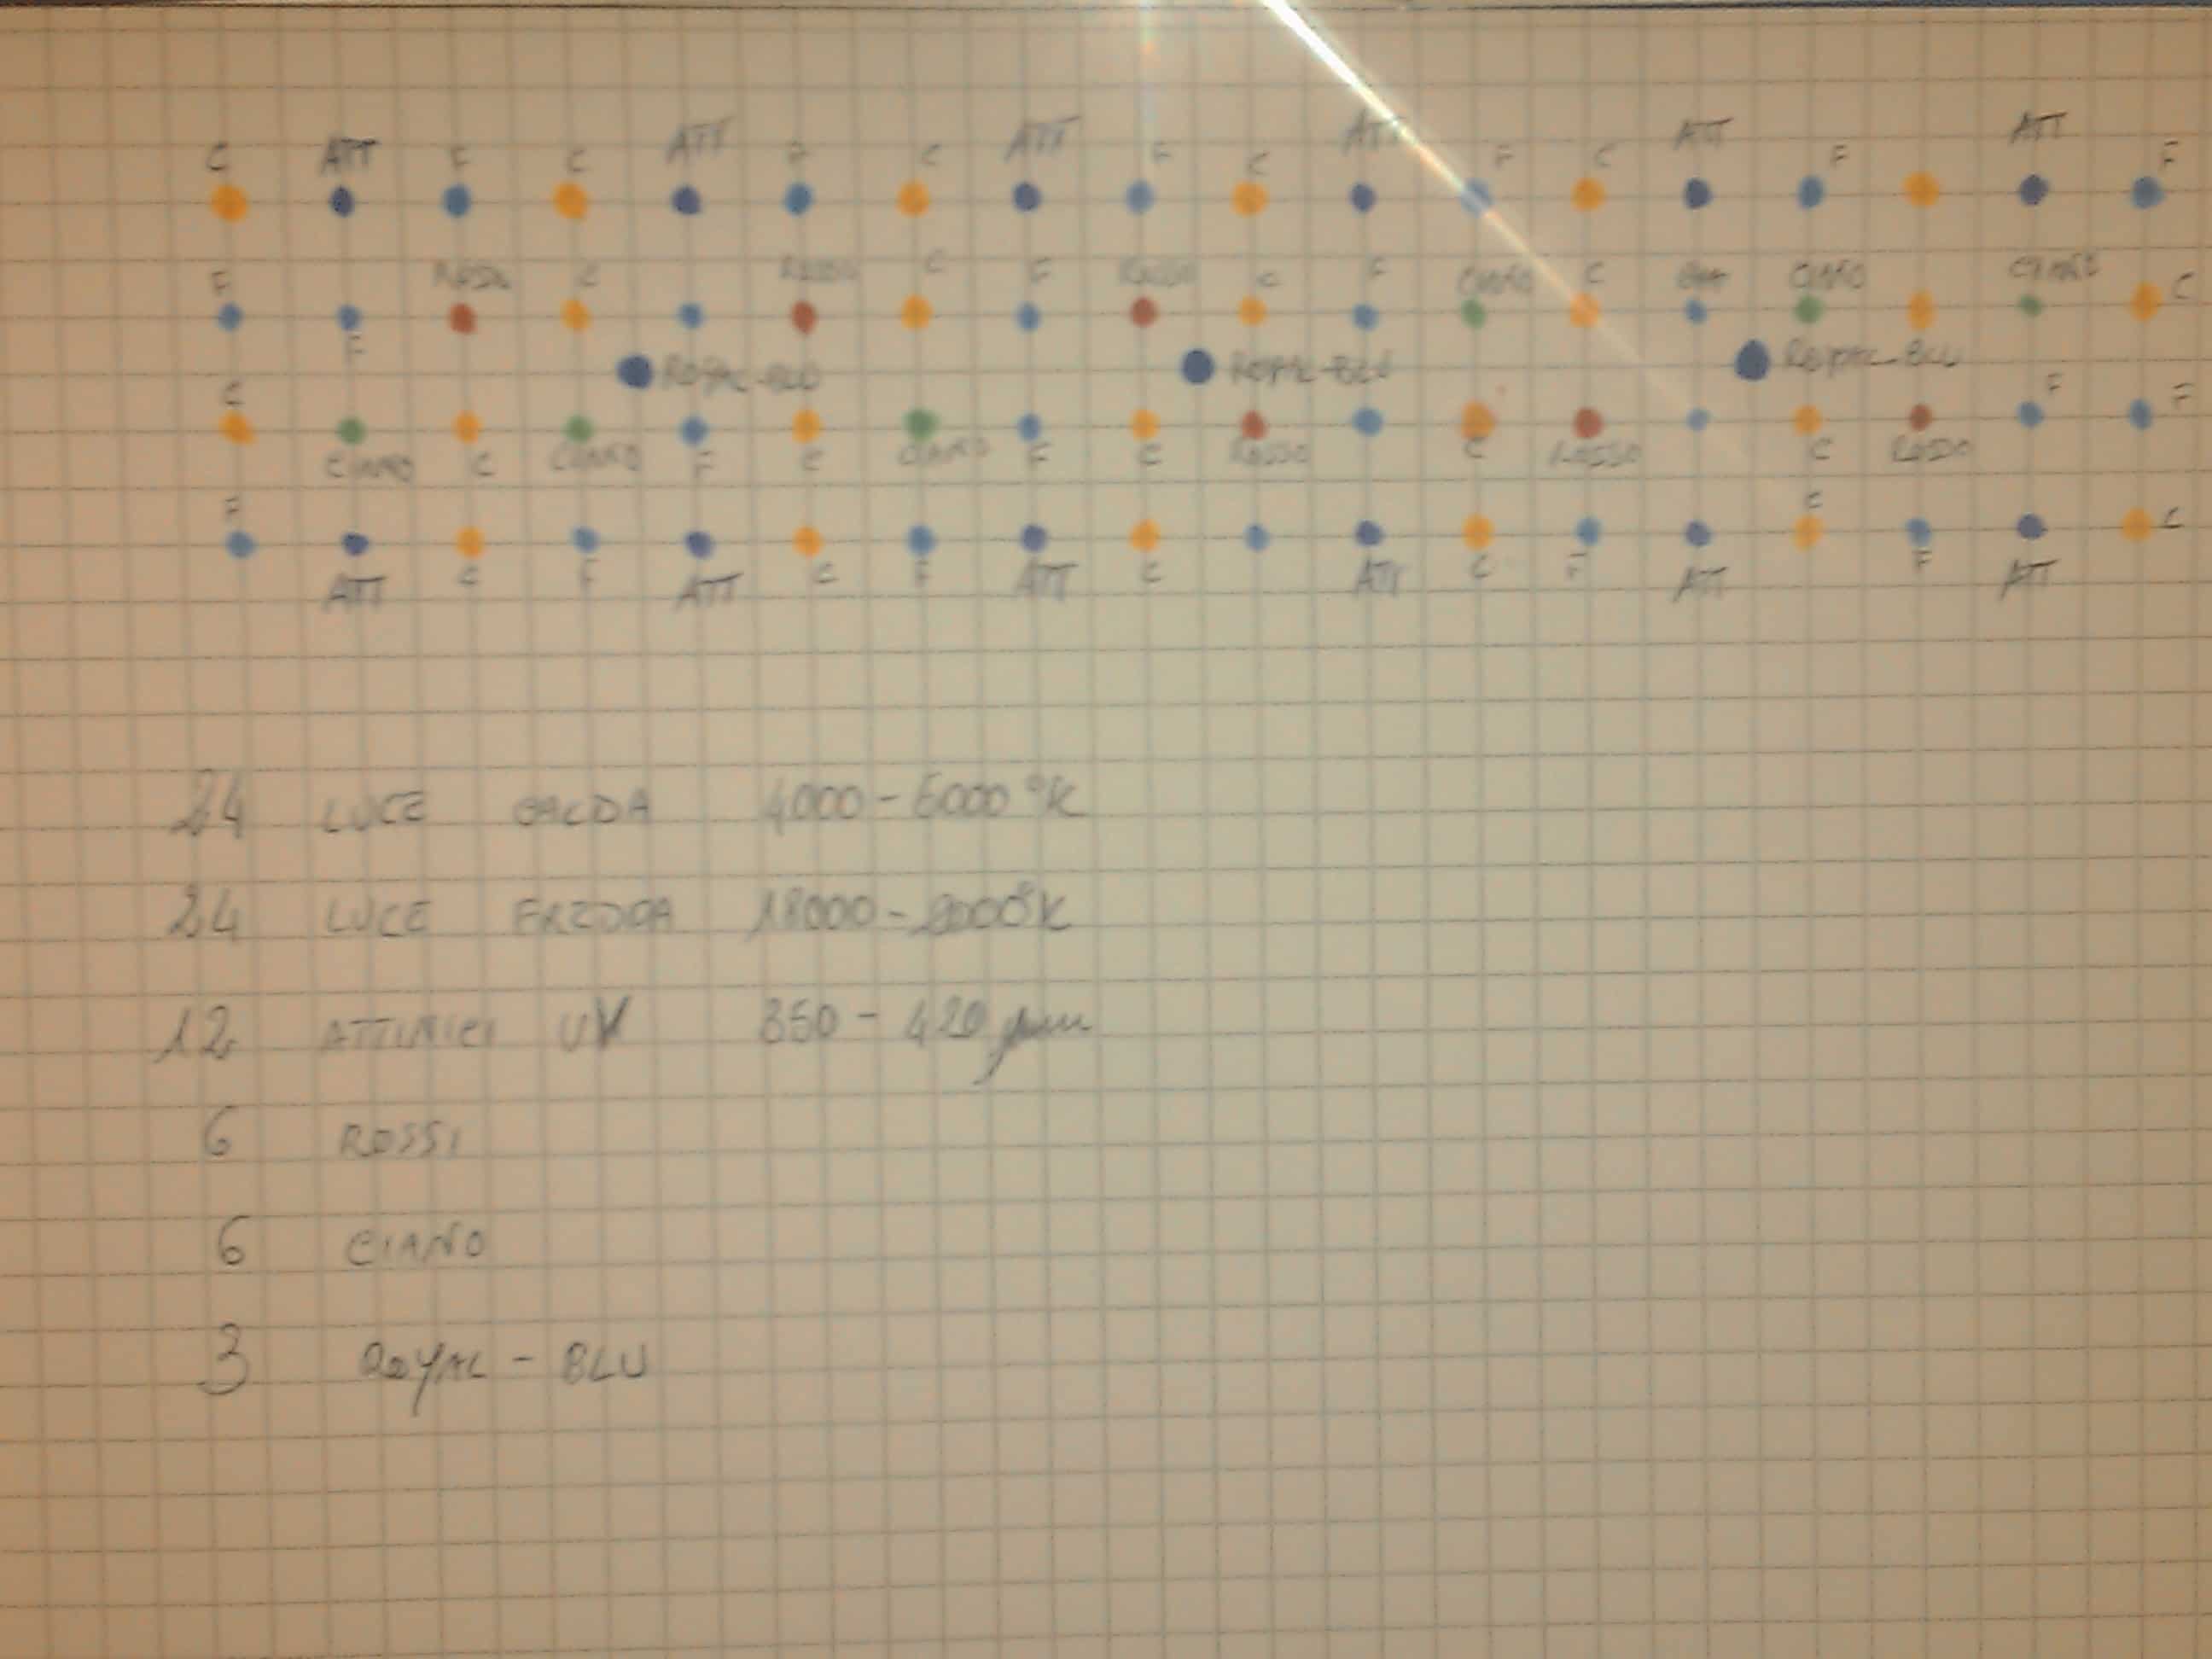 C ATT F C ATT F C ATT F C ATT F C ATT F ATT F
F F ROSSO C ROSSO C F ROSSO C F CIANO C CIANO CIANO C
ROYAL-BLU ROYAL-BLU ROYAL-BLU
C CIANO C CIANO F C CIANO F C ROSSO C ROSSO C ROSSO F F
F ATT C F ATT C F ATT C ATT C F ATT C F ATT C
24 LUCE CALDA 4000-6000°K
24 LUCE FREDDA 18000-
12 ATTINICI UV 350-420
6 ROSSI
6 CIANO
3 ROYAL-BLU